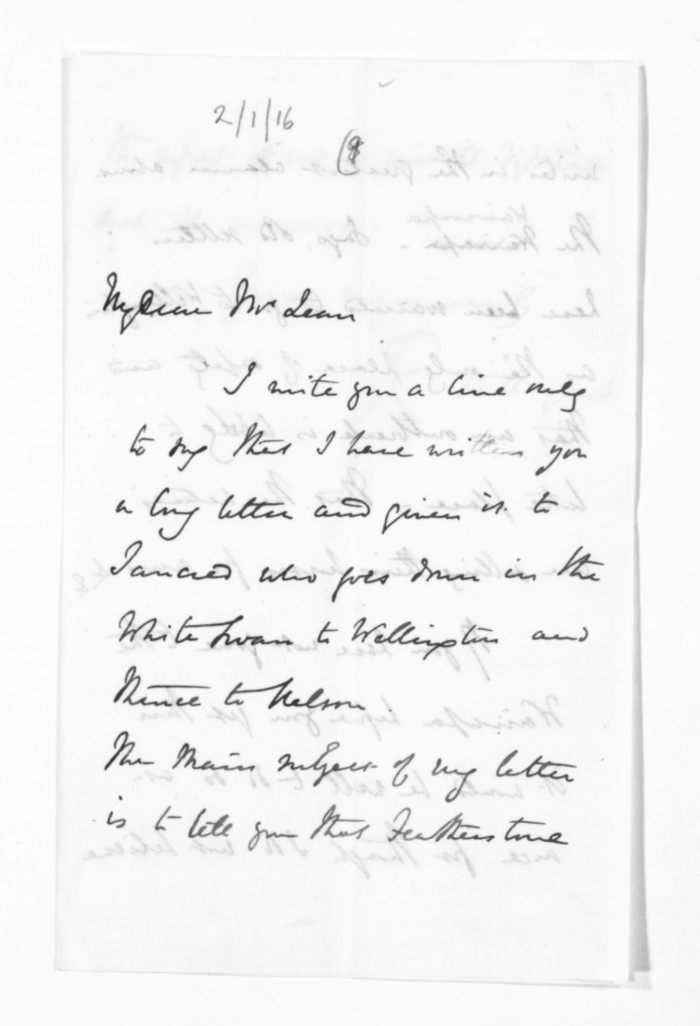 2/1/16
My Dear Mr Lean
I write you a line only
to say that I have written you
a long letter and given it to
Tancred who goes down in the
White Swan to Wellington and
thence to Nelson.
The main subject of my letter
is to tell you that Featherstone